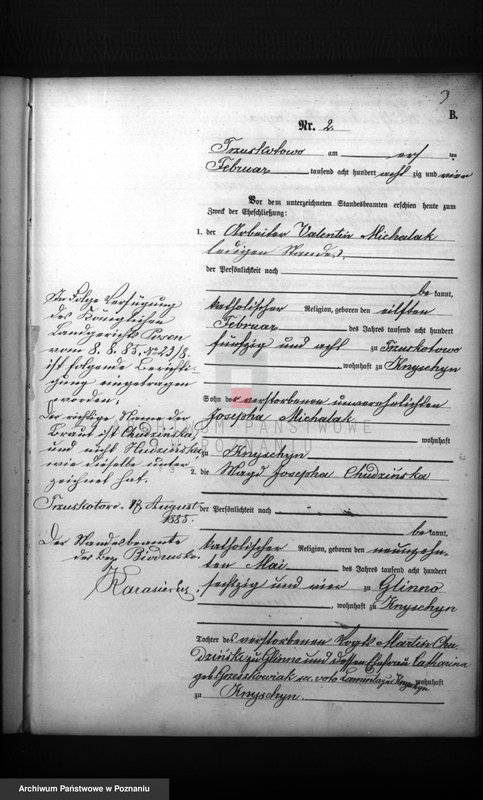 9
B.
Nr. 2.
Truskotowo am ten
Februar tausend acht hundert acht zig und vier
Vor dem unterzeichneten Standesbeamten erschien heute zum
Zweck der Eheschließung:
1. der Arbeiter Valentin Michalak
ledigen Standes
der Persönlichkeit nach
be kannt,
katholischer Religion, geboren den eilften
Februar des Jahres tausend acht hundert
fünfzig und acht zu Truskotowo
, wohnhaft zu Knyschyn
Sohn der verstorbenen unverehelichten
Josepha Michalak
wohnhaft
zu Knyschyn
2. die Magd Josepha Chudzińska
der Persönlichkeit nach
be kannt,
katholischer Religion, geboren den neunzehn
ten Mai des Jahres tausend acht hundert
sechzig und vier zu Glinno
, wohnhaft zu Knyschyn
Tochter des verstorbenen Vogt Martin Chu
dziński zu Glinno und dessen Ehefrau Catharina
geb wohnhaft
zu Knyschyn.
In Folge Verfügung
des Königlichen
Landgerichts Posen
vom 8. 8. 85. No 23/8.
ist folgende Berichti-
gung eingetragen
worden.
Der richtige Name der
Braut ist Chudzińska,
und nicht Hudzinska
wie dieselbe unter
zeichnet hat.
Truskotowo. 17 August
1885.
Der Standesbeamte
der Bez. Biedrusko.
ARCHIWUM PAŃSTWOWE
W POZNANIU
Archiwum Państwowe w Poznaniu